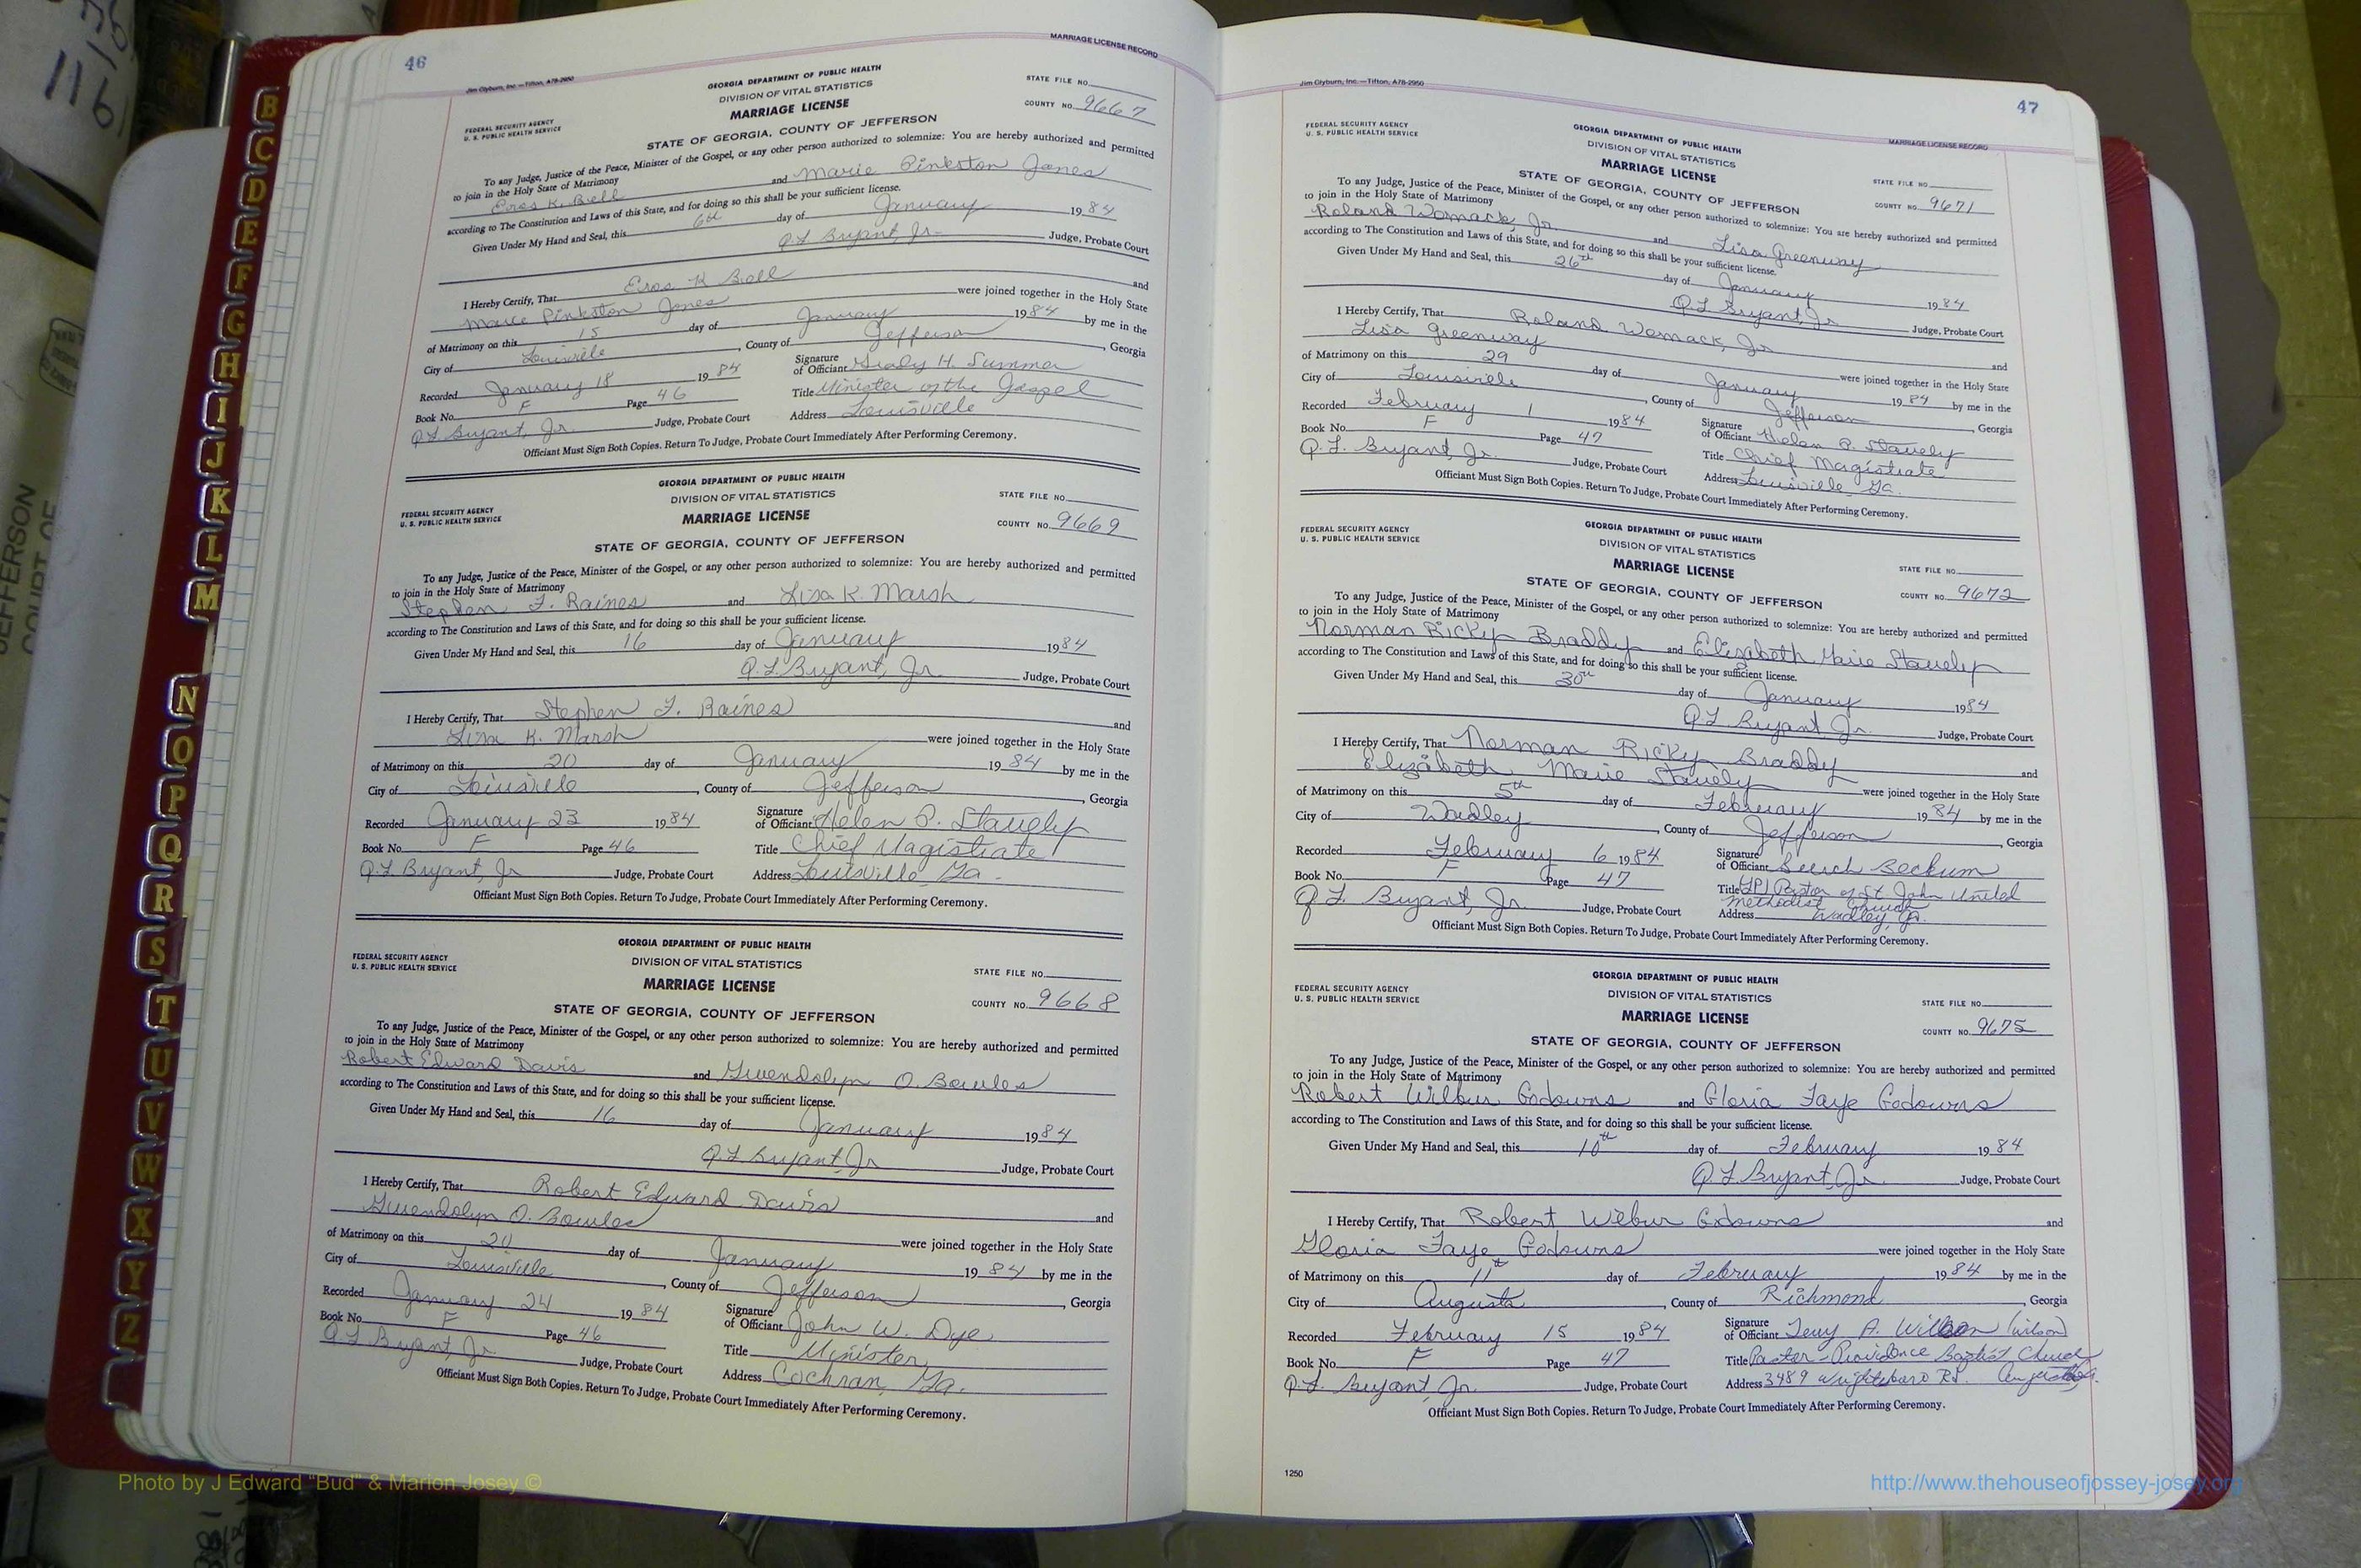 46
MARRIAGE LICENSE RECORD
Jim Clyburn, Inc.—Tifton, A78-2950
GEORGIA DEPARTMENT OF PUBLIC HEALTH
DIVISION OF VITAL STATISTICS
MARRIAGE LICENSE
STATE FILE NO.
COUNTY NO. 9667
FEDERAL SECURITY AGENCY
U. S. PUBLIC HEALTH SERVICE
STATE OF GEORGIA, COUNTY OF JEFFERSON
To any Judge, Justice of the Peace, Minister of the Gospel, or any other person authorized to solemnize: You are hereby authorized and permitted
to join in the Holy State of Matrimony
Eros K. Bell and Marie Pinkston Jones
according to The Constitution and Laws of this State, and for doing so this shall be your sufficient license.
Given Under My Hand and Seal, this 6th day of January 1984
Q L Bryant, Jr. Judge, Probate Court
I Hereby Certify, That Eros K Bell and
Marie Pinkston Jones were joined together in the Holy State
of Matrimony on this 15 day of January 1984 by me in the
City of Louisville, County of Jefferson, Georgia
Recorded January 18 1984
Signature of Officiant H. Summer
Book No. F Page 46
Title Minister of the Gospel
Q L Bryant, Jr. Judge, Probate Court
Address Louisville
Officiant Must Sign Both Copies. Return To Judge, Probate Court Immediately After Performing Ceremony.
GEORGIA DEPARTMENT OF PUBLIC HEALTH
DIVISION OF VITAL STATISTICS
MARRIAGE LICENSE
STATE FILE NO.
COUNTY NO. 9669
FEDERAL SECURITY AGENCY
U. S. PUBLIC HEALTH SERVICE
STATE OF GEORGIA, COUNTY OF JEFFERSON
To any Judge, Justice of the Peace, Minister of the Gospel, or any other person authorized to solemnize: You are hereby authorized and permitted
to join in the Holy State of Matrimony
Stephen F. Raines and Lisa K. Marsh
according to The Constitution and Laws of this State, and for doing so this shall be your sufficient license.
Given Under My Hand and Seal, this 16 day of January 1984
Q. L Bryant, Jr. Judge, Probate Court
I Hereby Certify, That Stephen F. Raines and
Lisa K. Marsh were joined together in the Holy State
of Matrimony on this 20 day of January 1984 by me in the
City of Louisville, County of Jefferson, Georgia
Recorded January 23 1984
Signature of Officiant Helen P. Stavely
Book No. F Page 46
Title Chief Magistrate
Q L Bryant, Jr Judge, Probate Court
Address Louisville, Ga.
Officiant Must Sign Both Copies. Return To Judge, Probate Court Immediately After Performing Ceremony.
GEORGIA DEPARTMENT OF PUBLIC HEALTH
DIVISION OF VITAL STATISTICS
MARRIAGE LICENSE
STATE FILE NO.
COUNTY NO. 9668
FEDERAL SECURITY AGENCY
U. S. PUBLIC HEALTH SERVICE
STATE OF GEORGIA, COUNTY OF JEFFERSON
To any Judge, Justice of the Peace, Minister of the Gospel, or any other person authorized to solemnize: You are hereby authorized and permitted
to join in the Holy State of Matrimony
Robert Edward Davis and Gwendolyn O. Bowles
according to The Constitution and Laws of this State, and for doing so this shall be your sufficient license.
Given Under My Hand and Seal, this 16 day of January 1984
Q. L Bryant, Jr Judge, Probate Court
I Hereby Certify, That Robert Edward Davis and
Gwendolyn O. Bowles were joined together in the Holy State
of Matrimony on this 20 day of January 1984 by me in the
City of Louisville, County of Jefferson, Georgia
Recorded January 24 1984
Signature of Officiant John W. Dye
Book No. F Page 46
Title Minister
Q L Bryant, Jr Judge, Probate Court
Address Cochran, Ga.
Officiant Must Sign Both Copies. Return To Judge, Probate Court Immediately After Performing Ceremony.
47
Jim Clyburn, Inc.—Tifton, A78-2950
MARRIAGE LICENSE RECORD
FEDERAL SECURITY AGENCY
U. S. PUBLIC HEALTH SERVICE
GEORGIA DEPARTMENT OF PUBLIC HEALTH
DIVISION OF VITAL STATISTICS
MARRIAGE LICENSE
STATE FILE NO.
COUNTY NO. 9671
STATE OF GEORGIA, COUNTY OF JEFFERSON
To any Judge, Justice of the Peace, Minister of the Gospel, or any other person authorized to solemnize: You are hereby authorized and permitted
to join in the Holy State of Matrimony
Roland Womack, Jr. and Lisa Greenway
according to The Constitution and Laws of this State, and for doing so this shall be your sufficient license.
Given Under My Hand and Seal, this 26th day of January 1984
Q L Bryant, Jr Judge, Probate Court
I Hereby Certify, That Roland Womack, Jr and
Lisa Greenway were joined together in the Holy State
of Matrimony on this 29 day of January 1984 by me in the
City of Louisville, County of Jefferson, Georgia
Recorded February 1 1984
Signature of Officiant Helen P. Stavely
Book No. F Page 47
Title Chief Magistrate
Q. L. Bryant Jr. Judge, Probate Court
Address Louisville, Ga.
Officiant Must Sign Both Copies. Return To Judge, Probate Court Immediately After Performing Ceremony.
FEDERAL SECURITY AGENCY
U. S. PUBLIC HEALTH SERVICE
GEORGIA DEPARTMENT OF PUBLIC HEALTH
DIVISION OF VITAL STATISTICS
MARRIAGE LICENSE
STATE FILE NO.
COUNTY NO. 9672
STATE OF GEORGIA, COUNTY OF JEFFERSON
To any Judge, Justice of the Peace, Minister of the Gospel, or any other person authorized to solemnize: You are hereby authorized and permitted
to join in the Holy State of Matrimony
Norman Ricky Braddy and Elizabeth Marie Stavely
according to The Constitution and Laws of this State, and for doing so this shall be your sufficient license.
Given Under My Hand and Seal, this 30th day of January 1984
Q L Bryant Jr. Judge, Probate Court
I Hereby Certify, That Norman Ricky Braddy and
Elizabeth Marie Stavely were joined together in the Holy State
of Matrimony on this 5th day of February 1984 by me in the
City of Wadley, County of Jefferson, Georgia
Recorded February 6 1984
Signature of Officiant Beckum
Book No. F Page 47
Title Pastor of St. John United Methodist Church
Q L. Bryant, Jr. Judge, Probate Court
Address Wadley, Ga.
Officiant Must Sign Both Copies. Return To Judge, Probate Court Immediately After Performing Ceremony.
FEDERAL SECURITY AGENCY
U. S. PUBLIC HEALTH SERVICE
GEORGIA DEPARTMENT OF PUBLIC HEALTH
DIVISION OF VITAL STATISTICS
MARRIAGE LICENSE
STATE FILE NO.
COUNTY NO. 9675
STATE OF GEORGIA, COUNTY OF JEFFERSON
To any Judge, Justice of the Peace, Minister of the Gospel, or any other person authorized to solemnize: You are hereby authorized and permitted
to join in the Holy State of Matrimony
Robert Wilbur Godowns and Gloria Faye Godowns
according to The Constitution and Laws of this State, and for doing so this shall be your sufficient license.
Given Under My Hand and Seal, this 10th day of February 1984
Q L Bryant, Jr. Judge, Probate Court
I Hereby Certify, That Robert Wilbur Godowns and
Gloria Faye Godowns were joined together in the Holy State
of Matrimony on this 11th day of February 1984 by me in the
City of Augusta, County of Richmond, Georgia
Recorded February 15 1984
Signature of Officiant Terry A. Wilson (wilson)
Book No. F Page 47
Title Pastor - Providence Baptist Church
Q. L. Bryant, Jr. Judge, Probate Court
Address 3489 Wrightsboro Rd. Augusta
Officiant Must Sign Both Copies. Return To Judge, Probate Court Immediately After Performing Ceremony.
1250
B
C
D
E
F
G
H
I
J
K
L
M
N
O
P
Q
R
S
T
U
V
W
X
Y
Z
JEFFERSON
COURT OF
Photo by J Edward "Bud" & Marion Josey ©
http://www.thehouseofjossey-josey.org